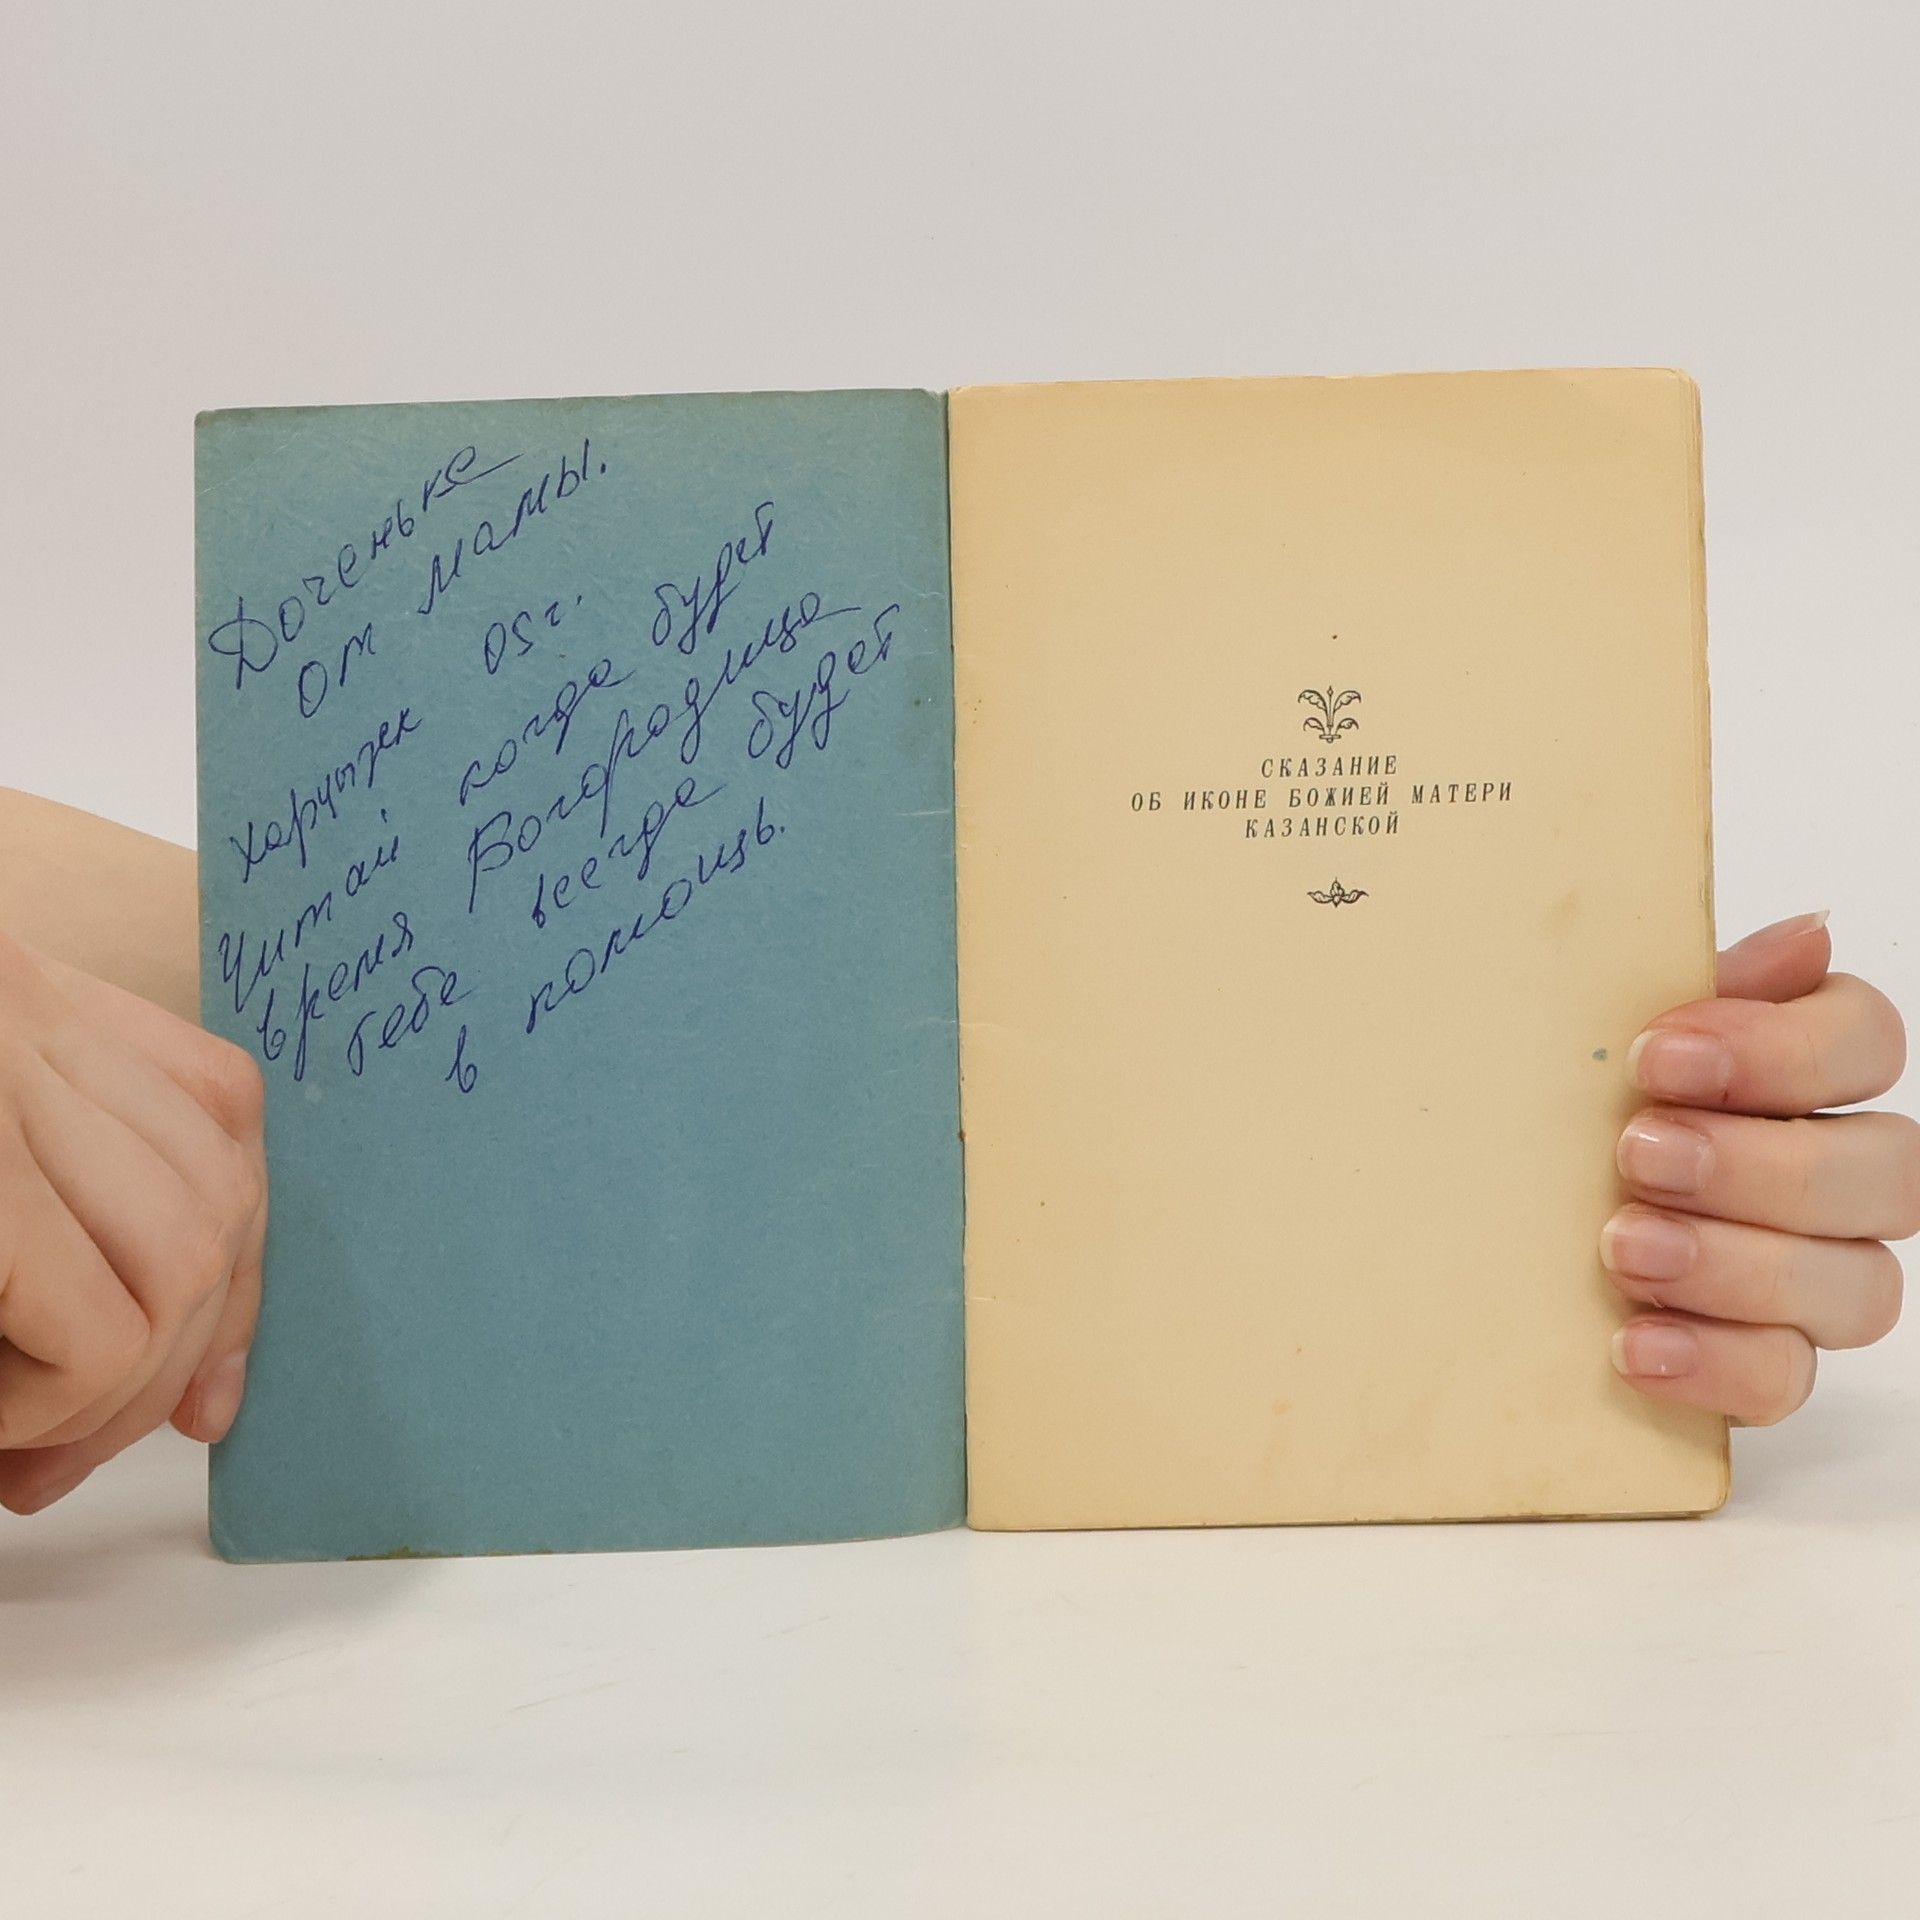 Доченьке
от мамы.
Харцызк 05г.
Читай когда будет
время Богородица
тебе всегда будет
в помощь.
СКАЗАНИЕ
ОБ ИКОНЕ БОЖИЕЙ МАТЕРИ
КАЗАНСКОЙ